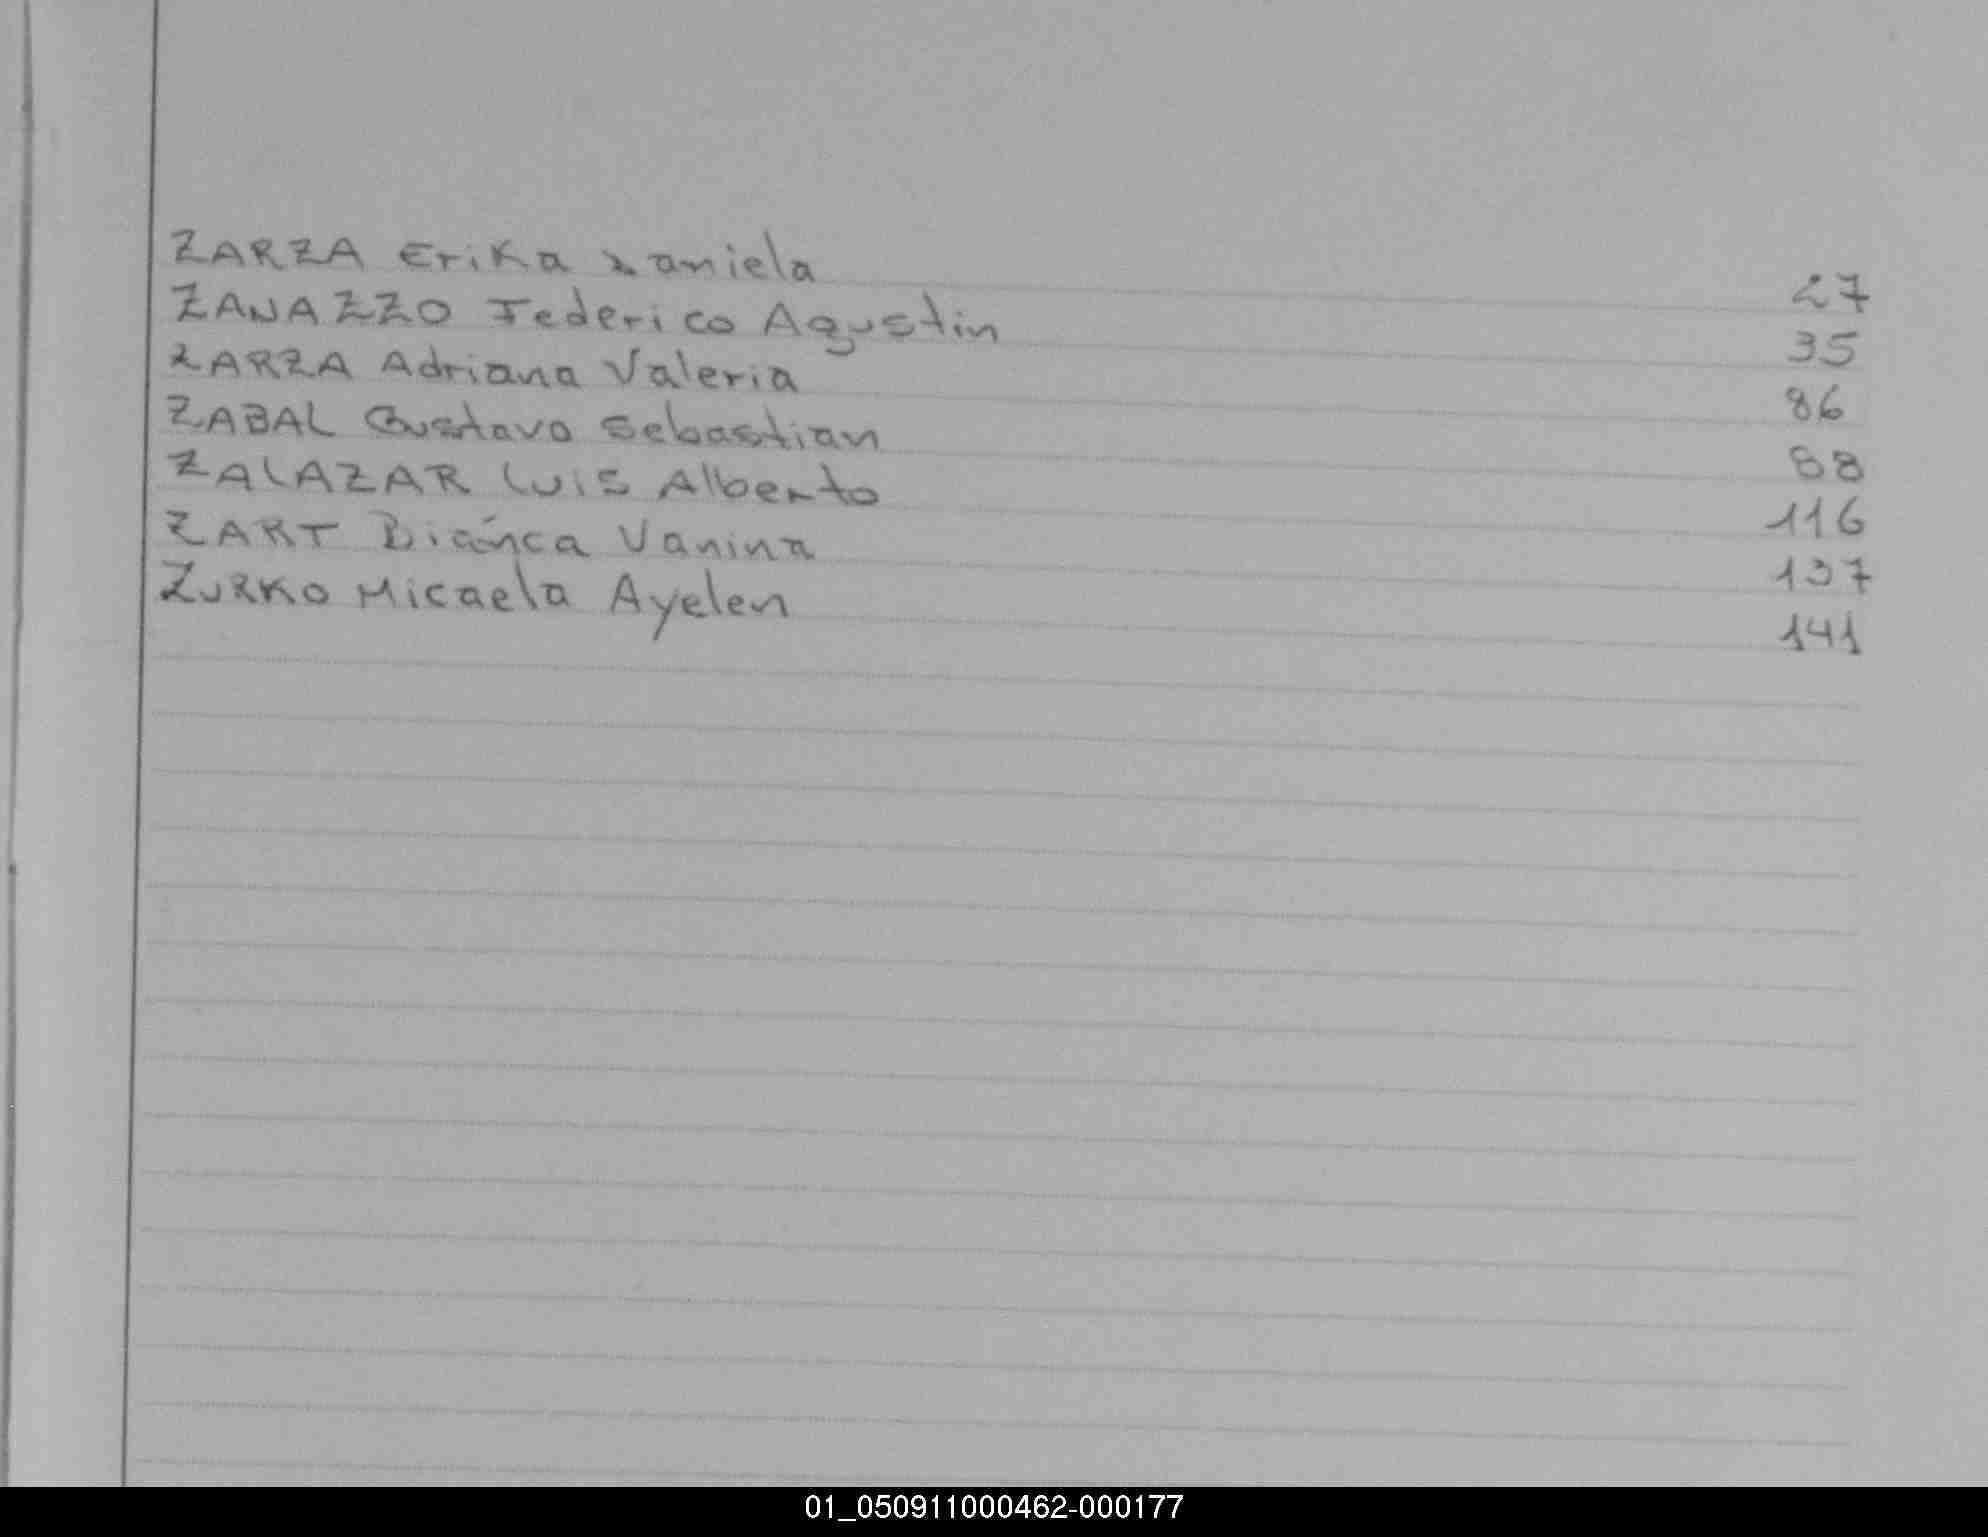 ZARZA Erika Daniela 27
ZANAZZO Federico Agustin 35
ZARZA Adriana Valeria 86
ZABAL Gustavo Sebastian 88
ZALAZAR Luis Alberto 116
ZART Bianca Vanina 137
ZURKO Micaela Ayelen 141
01_050911000462-000177